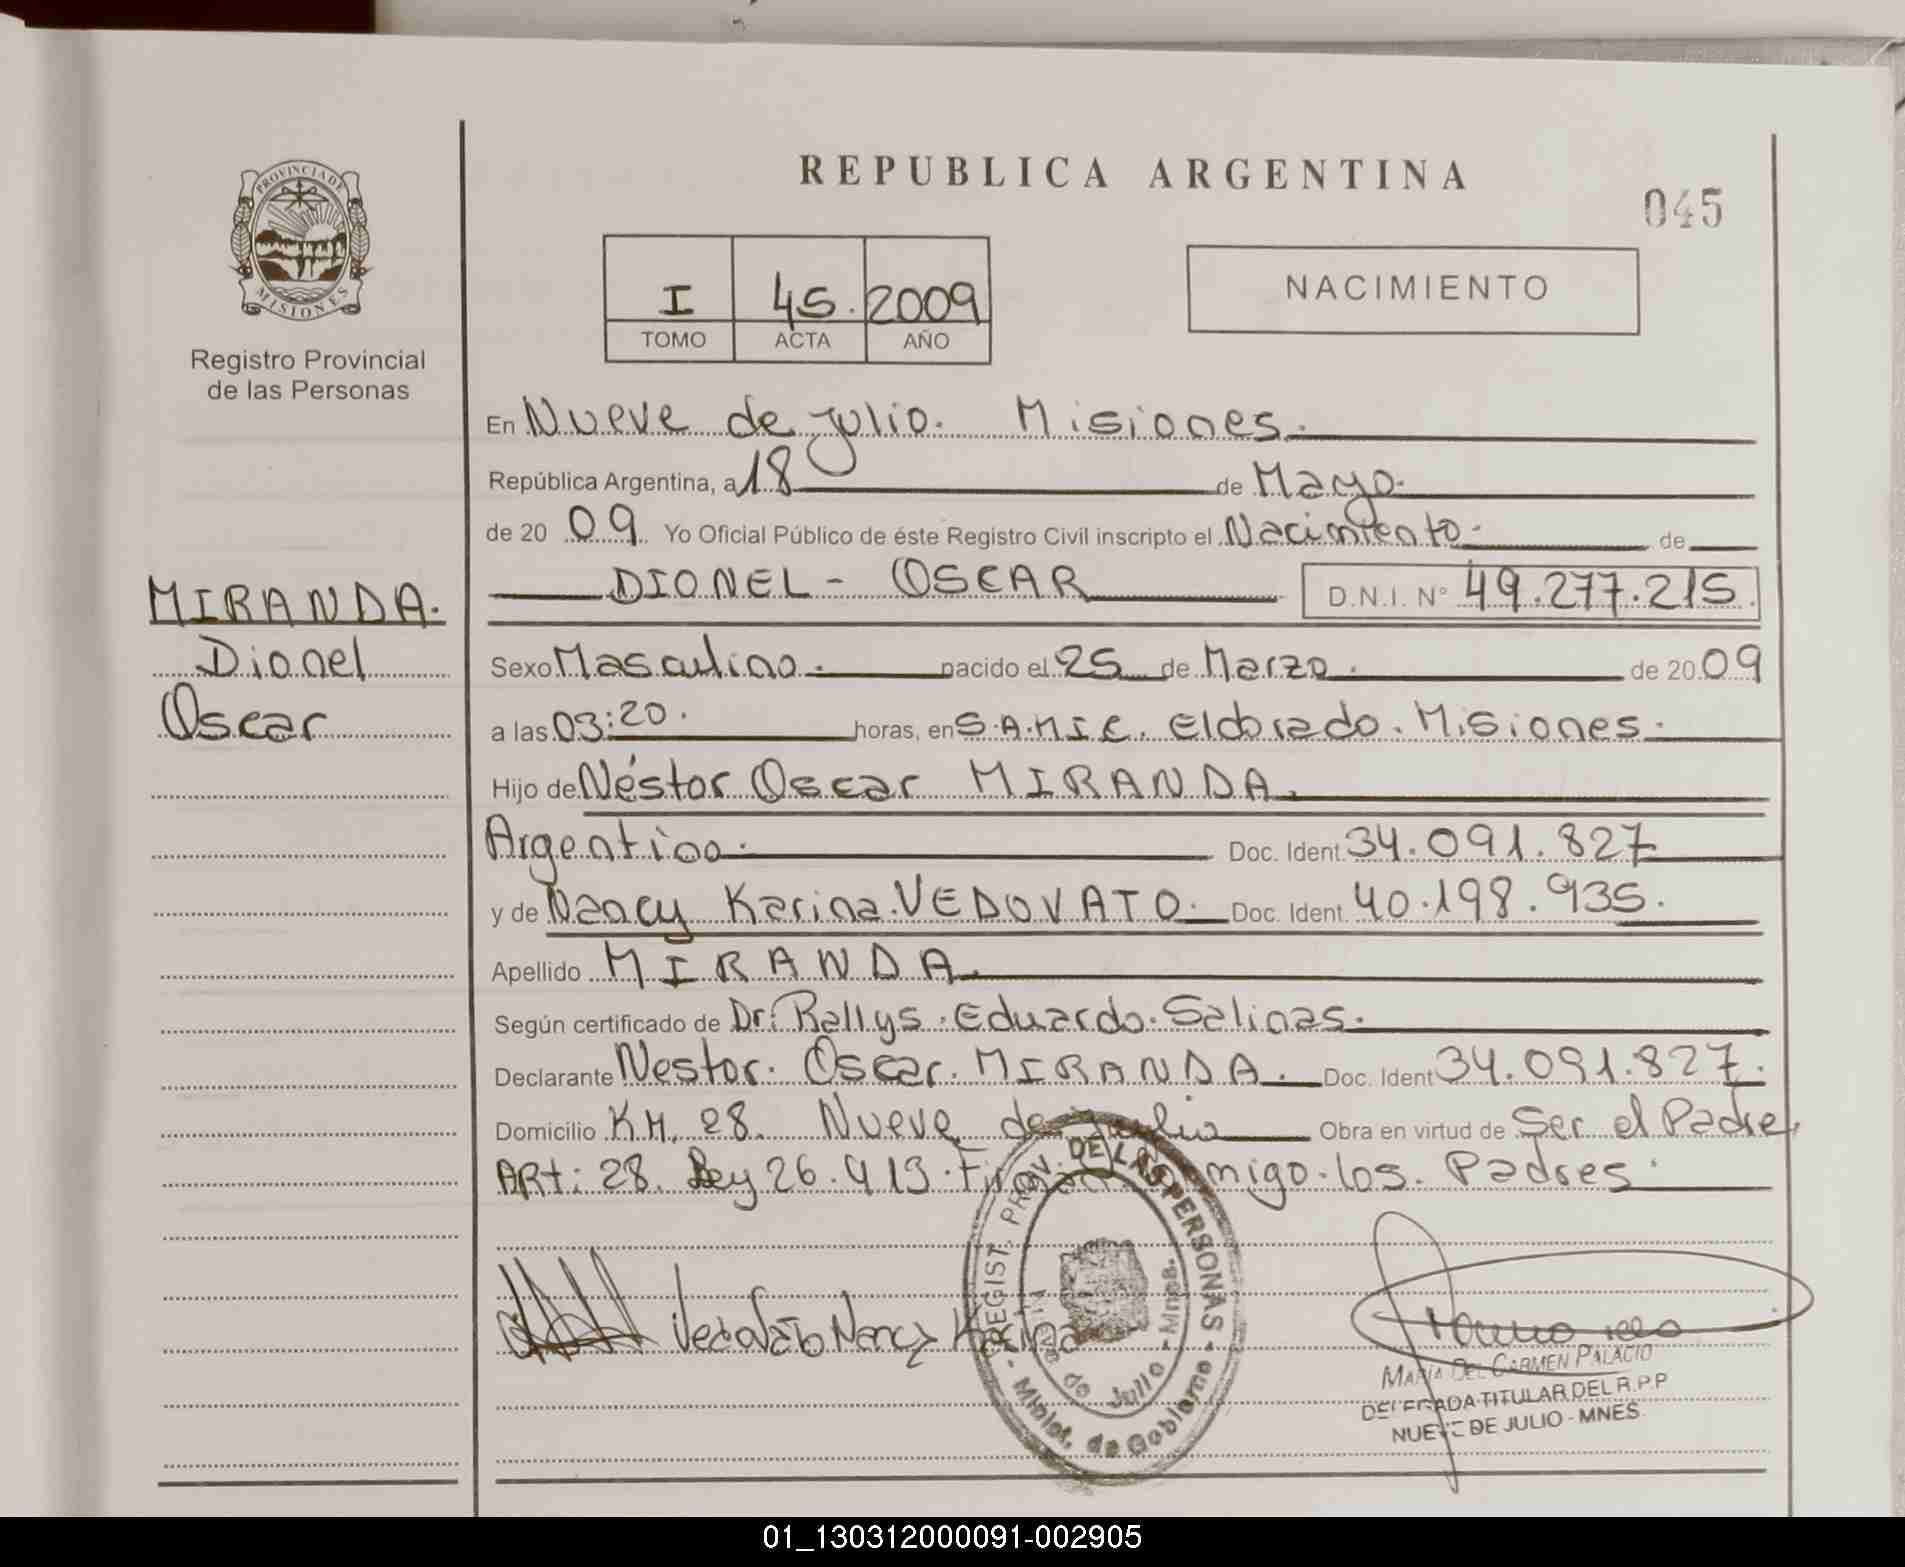 REPUBLICA ARGENTINA
045
PROVINCIA DE MISIONES
Registro Provincial
de las Personas
I 45. 2009
TOMO ACTA AÑO
NACIMIENTO
En Nueve de Julio. Misiones.
República Argentina, a 18 de Mayo.
de 20 09 Yo Oficial Público de éste Registro Civil inscripto el Nacimiento. de
DIONEL - OSCAR D.N.I. N° 49.277.215.
MIRANDA.
Dionel
Oscar
Sexo Masculino. nacido el 25 de Marzo. de 20 09
a las 03:20. horas, en S.A.M.I.C. Eldorado. Misiones.
Hijo de Néstor Oscar MIRANDA.
Argentino. Doc. Ident. 34.091.827
y de Nancy Karina VEDOVATO. Doc. Ident. 40.198.935.
Apellido MIRANDA.
Según certificado de Dr: Rallys. Eduardo. Salinas.
Declarante Nestor. Oscar. MIRANDA. Doc. Ident 34.091.827.
Domicilio KM. 28. Nueve de Julio Obra en virtud de Ser el Padre,
ARt: 28. Ley 26.413. migo los. Padres.
REGIST. PROV. DE LAS PERSONAS - Minist. de Gobierno -
de Julio - Mnes.
Vedovato Nancy Karina
MARIA DEL CARMEN PALACIO
DELEGADA TITULAR DEL R.P.P
NUEVE DE JULIO - MNES
01_130312000091-002905